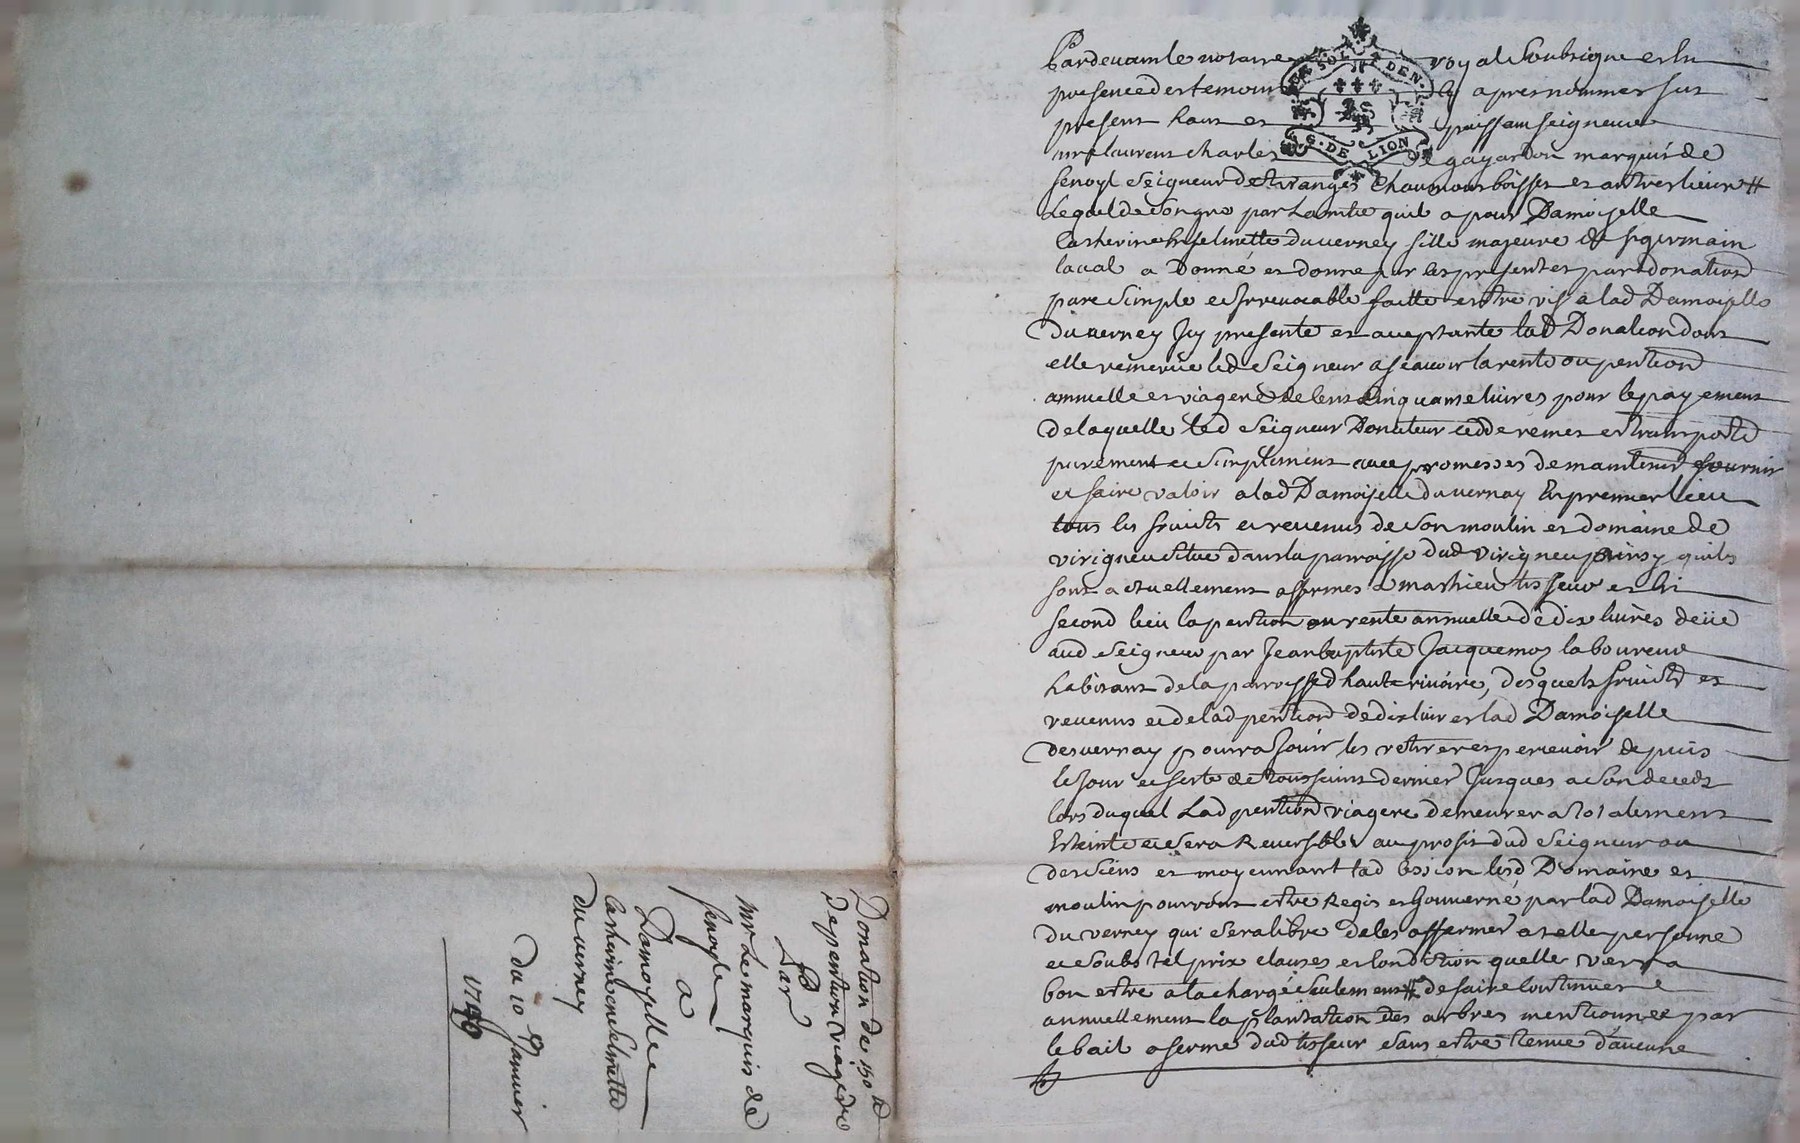 Pardevant le notaire royal soubsigne et en
presence des temoins cy apres nommes fut
present haut et puissant seigneur
mre laurent charles de gayardon marquis de
fenoyl seigneur detiranges chaumont boisset et autres lieux #
Lequel de son gre par Lamitie quil a pour Damoiselle
Catherine henselmette duverney fille majeure de st germain
laval a Donné et donne par les presentes par donation
pure simple et irrevocable faitte entre vifs a lad Damoiselle
du verney Icy presente et acceptante lad Donation dont
elle remercie led Seigneur ascavoir la rente ou pention
annuelle et viagere de Cent Cinquante livres pour lepayement
de laquelle led Seigneur Donateur cedde remet et transporte
purement et simplement avec promesses de maintenir fournir
et faire valoir alad Damoiselle duvernay En premier lieu
tous les fruicts et revenus de son moulin et domaine de
virigneu situe dans la parroisse dud virigneu ainsy quils
sont actuellement affermes a mathieu tisseur et En
second lieu la pention ou rente annuelle de dix livres deüe
aud Seigneur par Jean baptiste Jacquemoz laboureur
habitant de la parroisse d hauterivoire, desquels fruicts et
revenus et de lad pention de dix livres lad Damoiselle
duvernay pourra Jouir les retirer et percevoir depuis
le Jour et feste de toussaint dernier Jusques a son decedz
lors duquel Lad pention viagere demeurera totalement
Esteinte et sera Reversible au profit dud Seigneur ou
des siens et moyennant lad cession lesd Domaine et
moulin pourront estre Regis et Gouverné par lad Damoiselle
du verney qui sera libre de les affermer a telle personne
et soubs tel prix clauses et condition quelle verra
bon estre a la charge seulement # de faire continuer
annuellement la plantation des arbres mentionnee par
le bail a ferme dud tisseur sans estre tenue d'aucune
GEN. SOL DEN.
G. DE LION
Donation de 150 ₶
de pention viagere
Par
Mr Le marquis de
fenoyle
a
Damoyselle
Catherine enselmette
du verney
Du 10 Janvier
1749